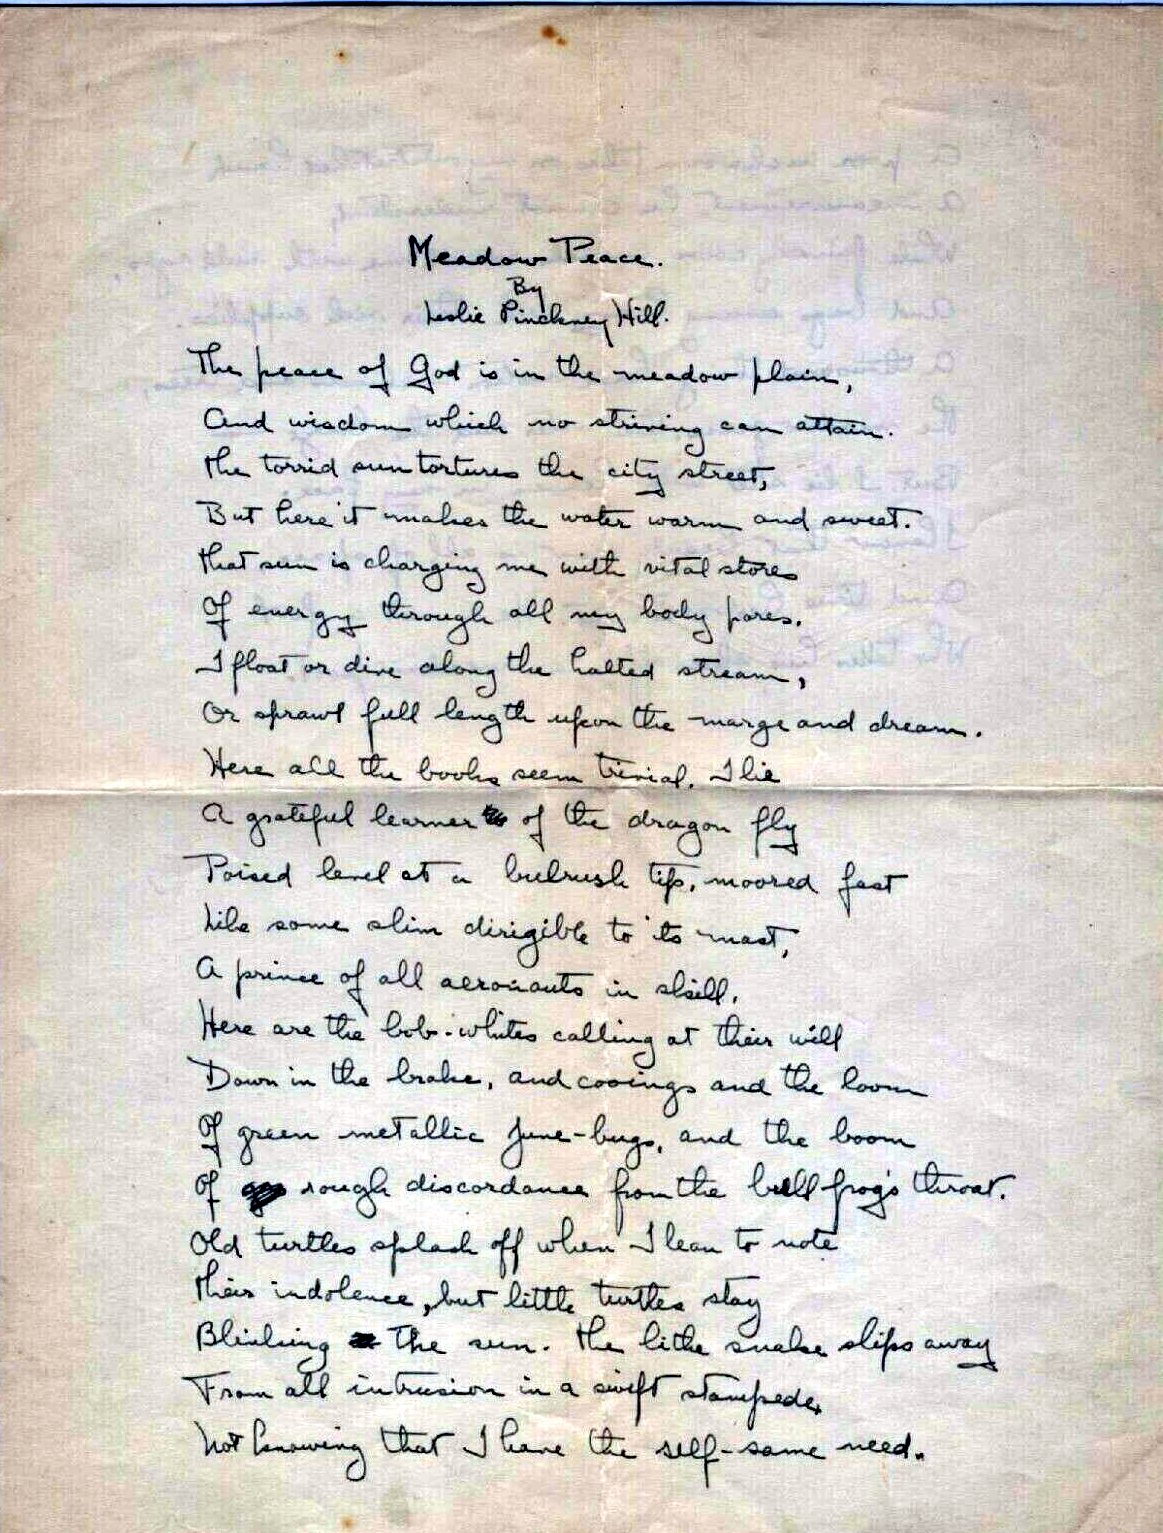 Meadow Peace.
By
Leslie Pinckney Hill.
The peace of God is in the meadow plain,
And wisdom which no striving can attain.
The torrid sun tortures the city street,
But here it makes the water warm and sweet.
That sun is charging me with vital stores
Of energy through all my body pores.
I float or dive along the halted stream,
Or sprawl full length upon the marge and dream.
Here all the books seem trivial. I lie
A grateful learner of the dragon fly
Poised level at a bulrush tip, moored fast
Like some slim dirigible to its mast,
A prince of all aeronauts in skill.
Here are the bob-whites calling at their will
Down in the brake, and cooings and the loom
Of green metallic June-bugs, and the boom
Of rough discordance from the bull frog's throat.
Old turtles splash off when I lean to note
Their indolence, but little turtles stay
Blinking the sun. The lithe snake slips away
From all intrusion in a swift stampede,
Not knowing that I have the self-same need.